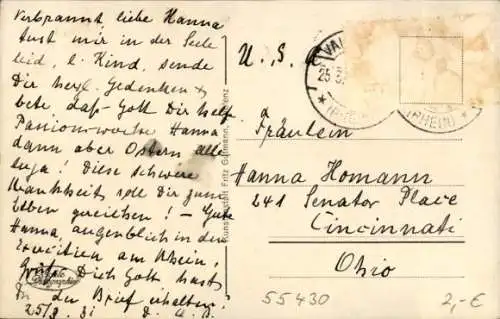 Verbrannt, liebe Hanna
tust mir in der Seele
leid, l. Kind, sende
Dir herzl. Gedenken &
bete daß Gott Dir helfe.
Passionswoche Hanna,
dann aber Ostern, alle
luja! Diese schwere
Krankheit soll Dir zum
Leben gereichen! – Gute
Hanna, augenblich in den
Exerzitien am Rhein.
Grüß Dich Gott hast
Du den Brief erhalten?
25/3. 31
Kunstanstalt Fritz Gutmann,
U. S. A.
VAL
25.3.
(RHEIN)
(RHEIN)
Fräulein
Hanna Homann
241 Senator Place
Cincinnati
Ohio
55430
2,-€